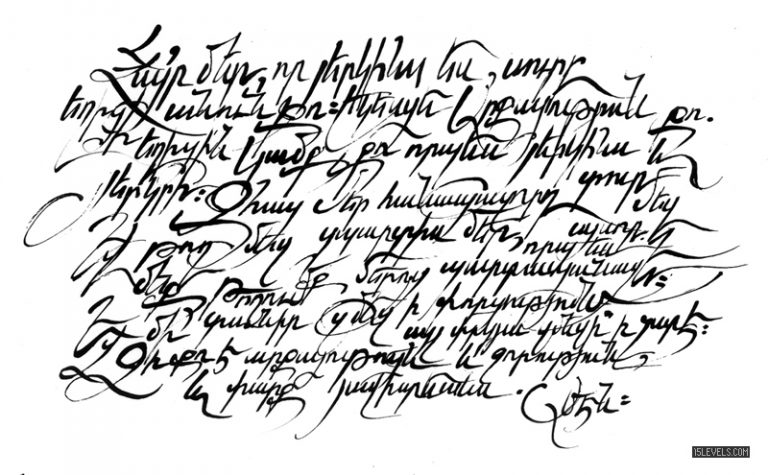 Հայր մեր, որ յերկինս ես, սուրբ
եղիցի անուն քո: Եկեսցէ արքայութիւն քո.
եղիցին կամք քո որպէս յերկինս և
յերկրի: Զհաց մեր հանապազորդ տուր մեզ
և թող մեզ զպարտիս մեր, որպէս և
մեք թողումք մերոց պարտապանաց
և մի տանիր զմեզ ի փորձութիւն
այլ փրկեա զմեզ ի չարէ:
Զի քո է արքայութիւն և զօրութիւն
և փառք յաւիտեանս. Ամէն:
15LEVELS.COM